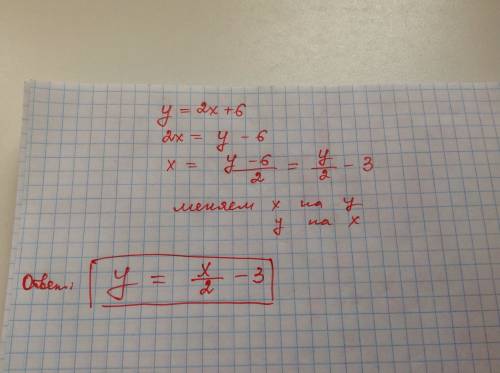 y = 2x + 6
2x = y - 6
x = \frac{y - 6}{2} = \frac{y}{2} - 3
меняем x на y
y на x
Ответ: y = \frac{x}{2} - 3